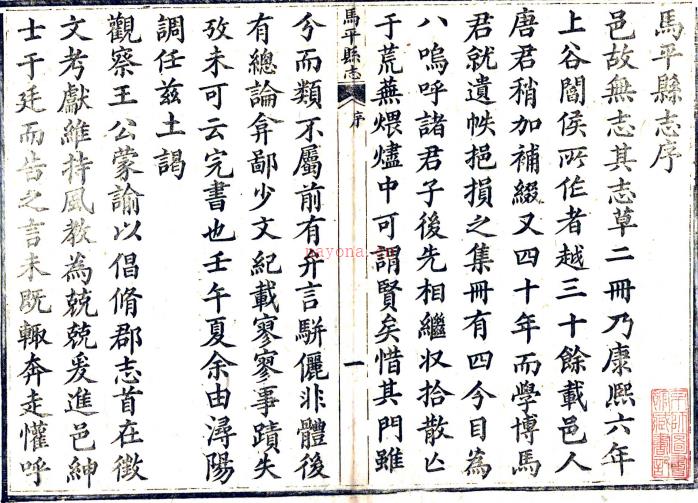 馬平縣志序
邑故無志其志草二冊乃康熙六年
上谷閻侯所作者越三十餘載邑人
唐君稍加補綴又四十年而學博馬
君就遺帙挹損之集冊有四今目為
八嗚呼諸君子後先相繼収拾散亾
于荒蕪煨燼中可謂賢矣惜其門雖
馬平縣志
序
一
兮而類不屬前有弁言駢儷非體後
有總論弇鄙少文紀載寥寥事蹟失
攷未可云完書也壬午夏余由潯陽
調任兹土謁
觀察王公蒙諭以倡脩郡志首在徵
文考獻維持風教為兢兢爰進邑紳
士于廷而告之言未既輙奔走懽呼
nayona.cn